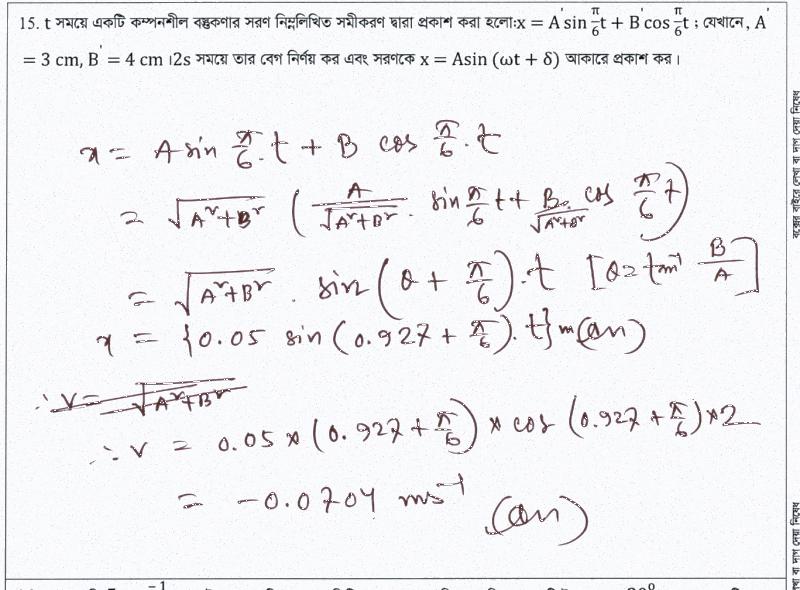 15. t সময়ে একটি কম্পনশীল বস্তুকণার সরণ নিম্নলিখিত সমীকরণ দ্বারা প্রকাশ করা হলো:x = A' sin π/6 t + B' cos π/6 t ; যেখানে, A'
= 3 cm, B' = 4 cm ।2s সময়ে তার বেগ নির্ণয় কর এবং সরণকে x = Asin (ωt + δ) আকারে প্রকাশ কর।
x = A sin π/6 . t + B cos π/6 . t
= √(A²+B²) ( A/√(A²+B²) . sin π/6 t + B/√(A²+B²) . cos π/6 t )
= √(A²+B²) . sin ( θ + π/6 ) . t [ θ = tan⁻¹ B/A ]
x = {0.05 sin (0.927 + π/6) . t} m (an)
∴ v = √(A²+B²)
∴ v = 0.05 × (0.927 + π/6) × cos (0.927 + π/6) × 2
= -0.0704 ms⁻¹ (an)
বক্সের বাইরে লেখা বা দাগ দেয়া নিষেধ